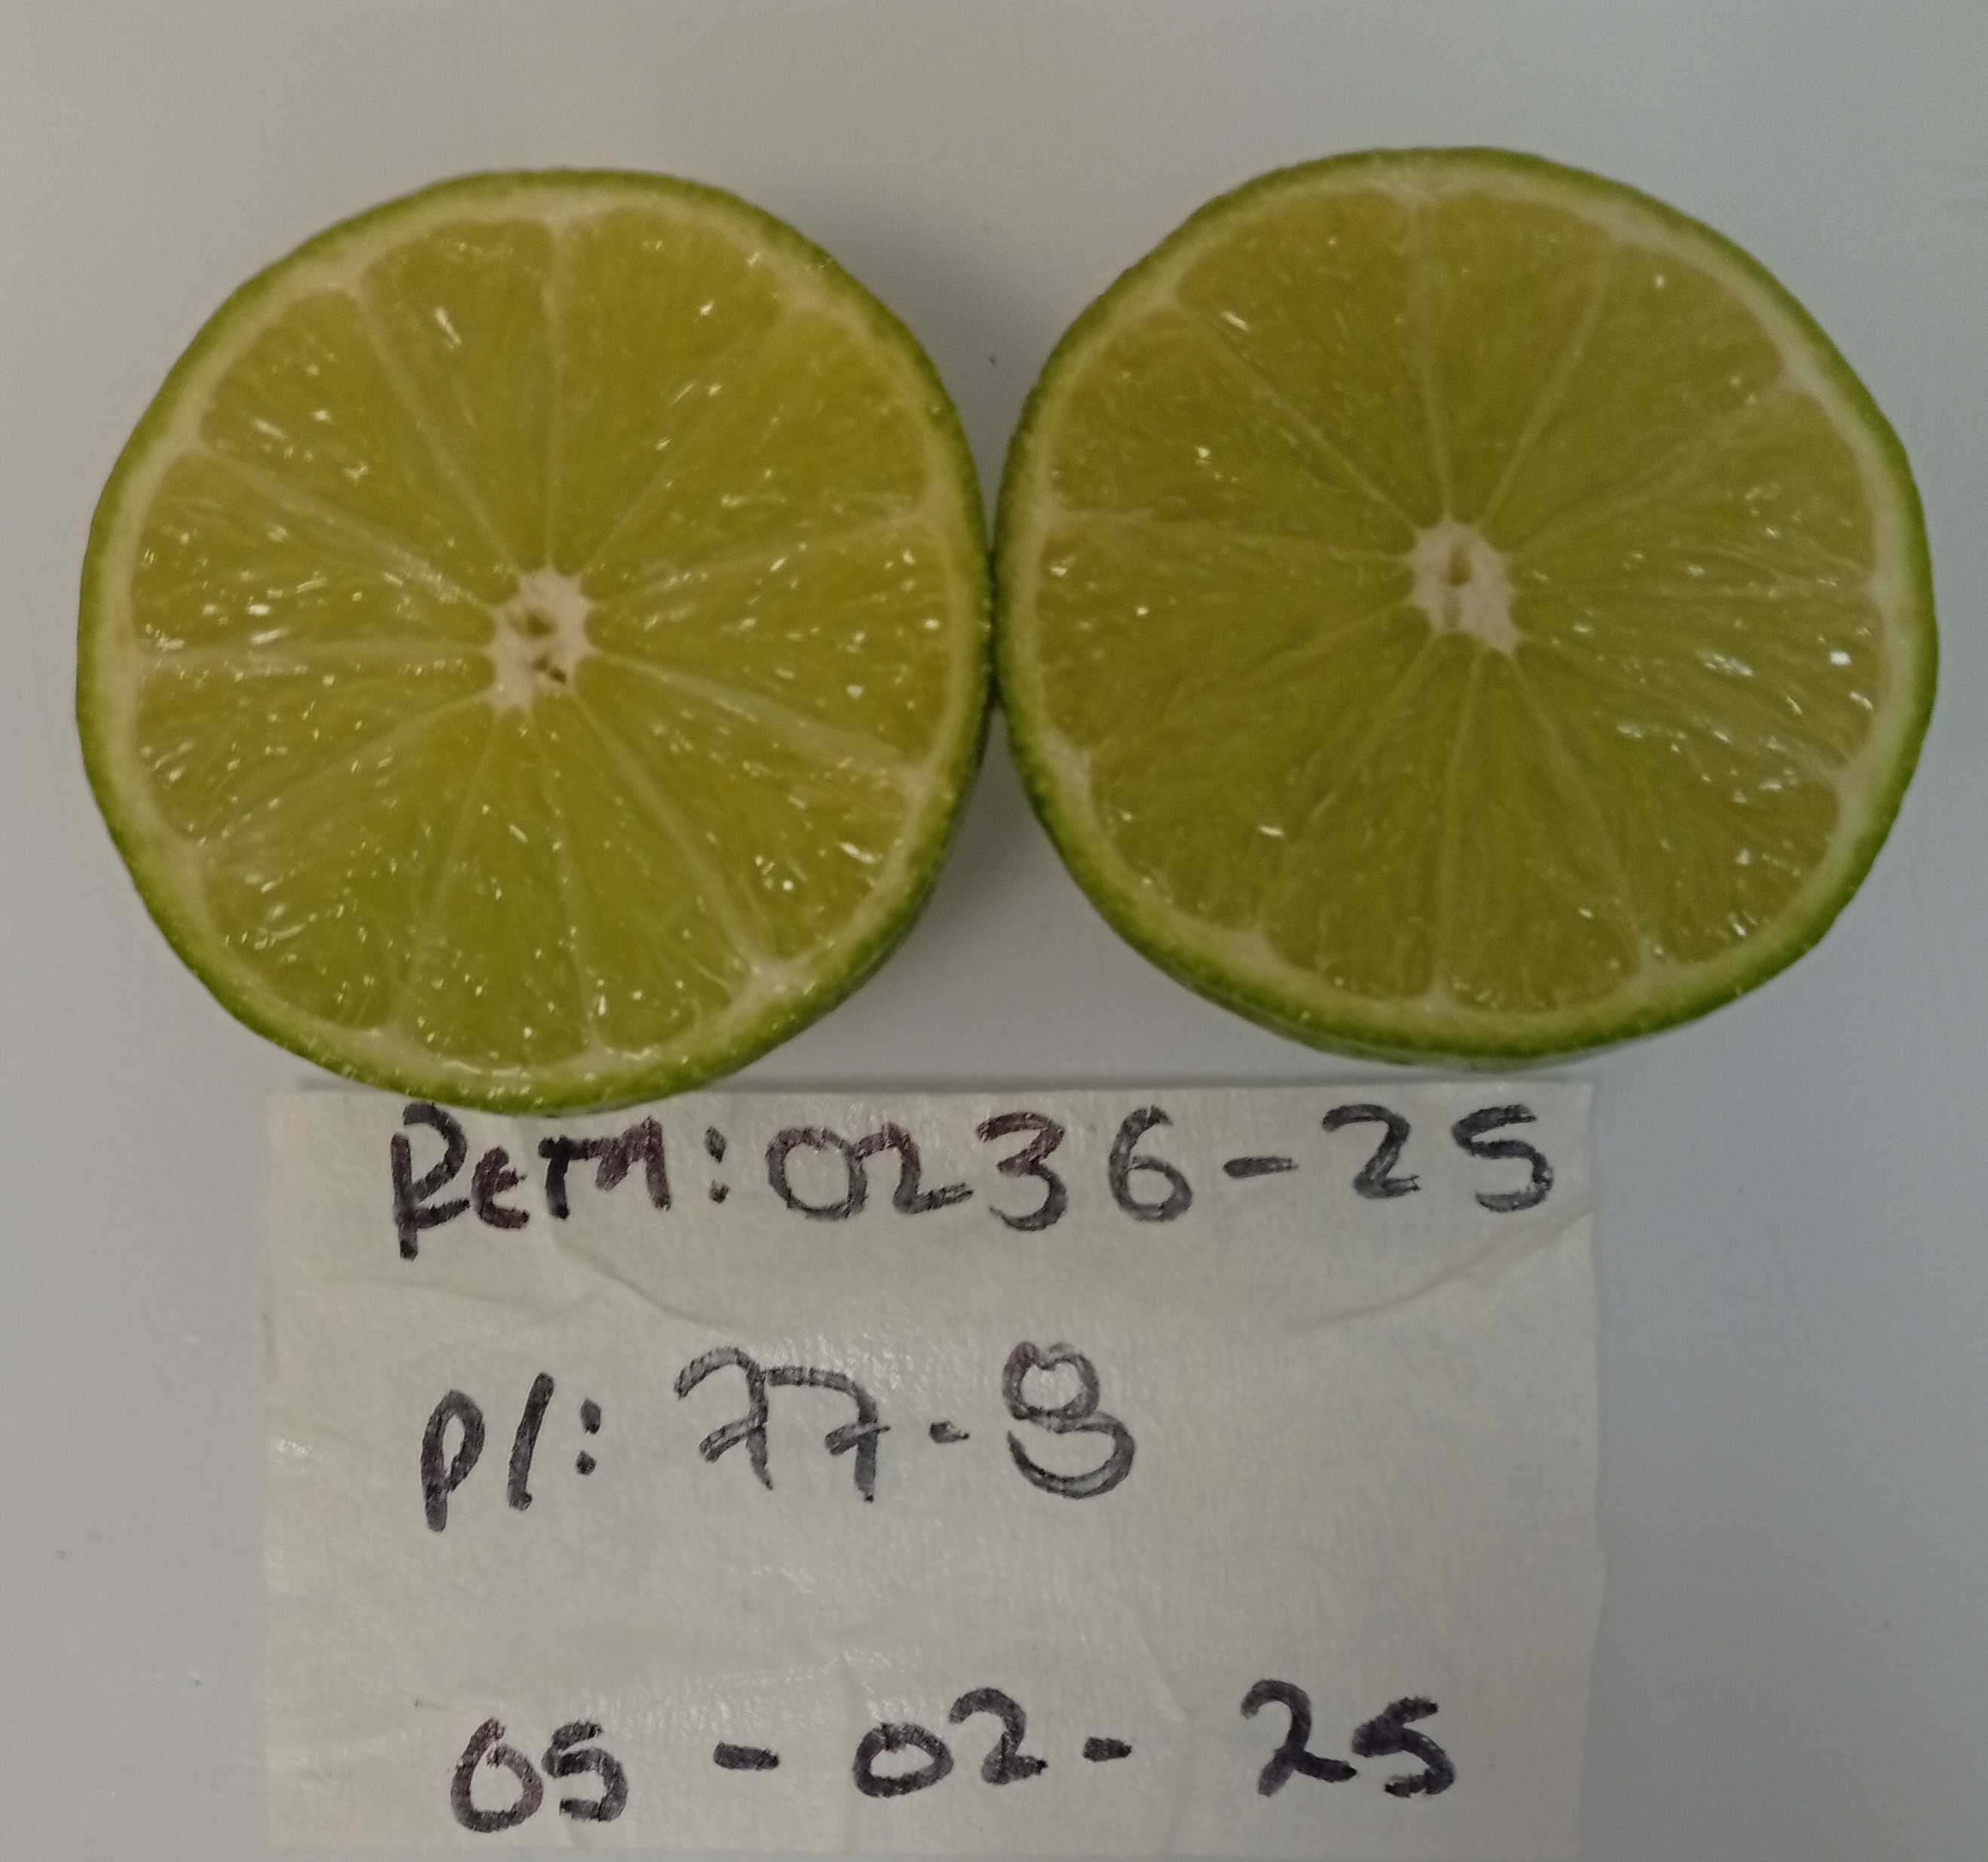 Rem: 0236-25
Pl: 77-8
05-02-25